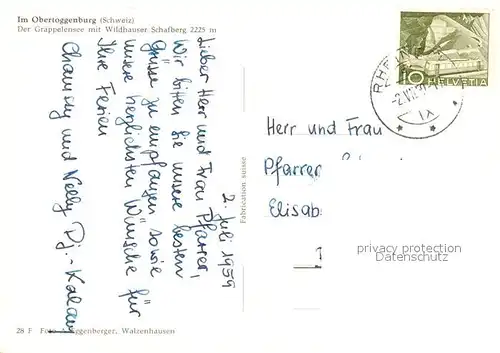 Im Obertoggenburg (Schweiz)
Der Grappelensee mit Wildhauser Schafberg 2225 m
2. Juli 1959
Lieber Herr und Frau Pfarrer,
Wir bitten Sie unsere besten
Grüsse zu empfangen sowie
unsere herzlichsten Wünsche für
Ihre Ferien
und Nelly
Fabrication suisse
10
HELVETIA
IX
Herr und Frau
Pfarrer
Elisab
privacy protection
Datenschutz
28 F Foto Walzenhausen